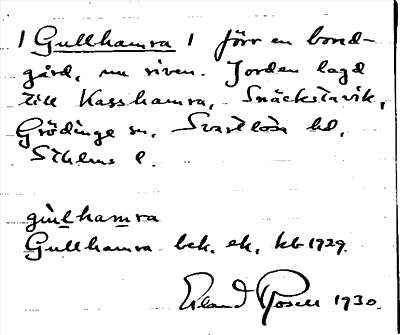 | Gullhamra | förr en bond-
gård, nu riven. Jorden lagd
till Kasshamra, Snäckstavik,
Grödinge sn, Svartlösa hd,
Sthlms l.
gùlhamra
Gullhamra bck. ek. kb 1929.
Erland Rosell 1930.